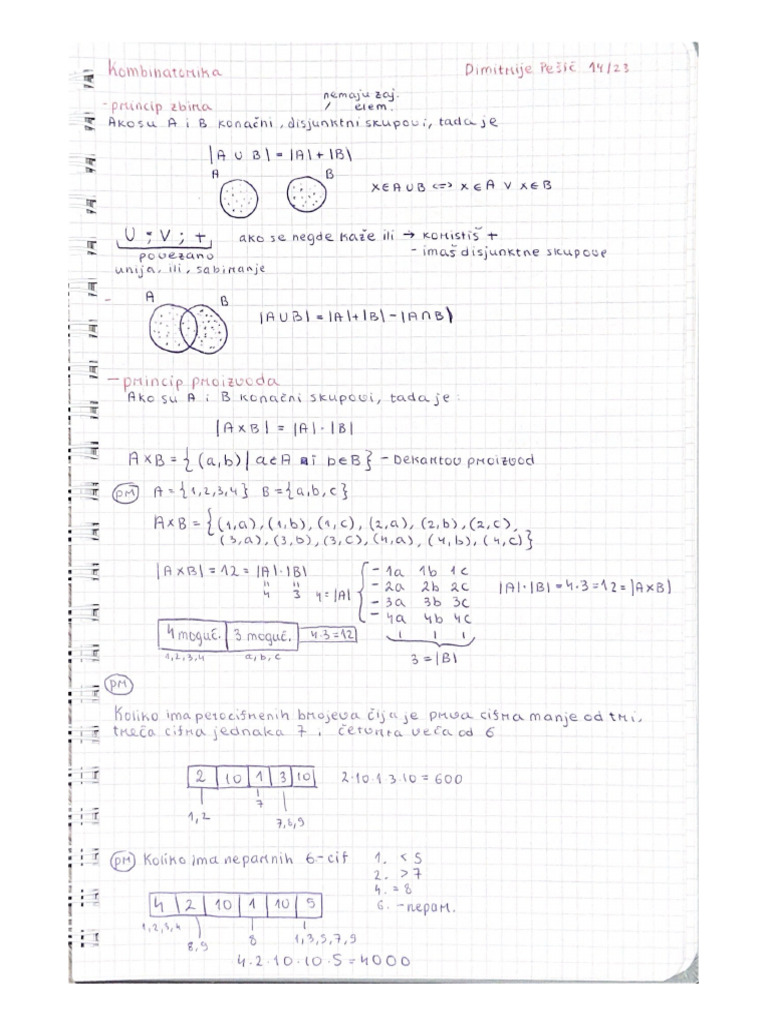 Kombinatorika
Dimitrije Pešić 14/23
nemaju zaj.
elem.
-princip zbira
Ako su A i B konačni, disjunktni skupovi, tada je
|A ∪ B| = |A|+|B|
A B
x∈A∪B <=> x∈A ∨ x∈B
U ; V ; +
povezano
unija, ili, sabiranje
ako se negde kaže ili → koristiš +
- imaš disjunktne skupove
-
A B
|A∪B| = |A|+|B|-|A∩B|
-princip proizvoda
Ako su A i B konačni skupovi, tada je:
|A×B| = |A|·|B|
A×B = {(a,b)| a∈A i b∈B} - Dekartov proizvod
pr A={1,2,3,4} B={a,b,c}
A×B = {(1,a), (1,b), (1,c), (2,a), (2,b), (2,c),
(3,a), (3,b), (3,c), (4,a), (4,b), (4,c)}
|A×B| = 12 = |A|·|B|
" "
4 3
4=|A|
- 1a 1b 1c
- 2a 2b 2c
- 3a 3b 3c
- 4a 4b 4c
3 = |B|
|A|·|B| = 4·3 = 12 = |A×B|
4 moguć. 3 moguć. 4·3=12
1,2,3,4 a,b,c
pr
Koliko ima petocifrenih brojeva čija je prva cifra manje od tri,
treća cifra jednaka 7 i četvrta veća od 6
2 10 1 3 10
2·10·1 3·10 = 600
1,2
7
7,8,9
pr Koliko ima neparnih 6-cif
1. < 5
2. > 7
4. = 8
6. - nepar.
4 2 10 1 10 5
1,2,3,4
8,9
8
1,3,5,7,9
4·2·10·10·5=4000